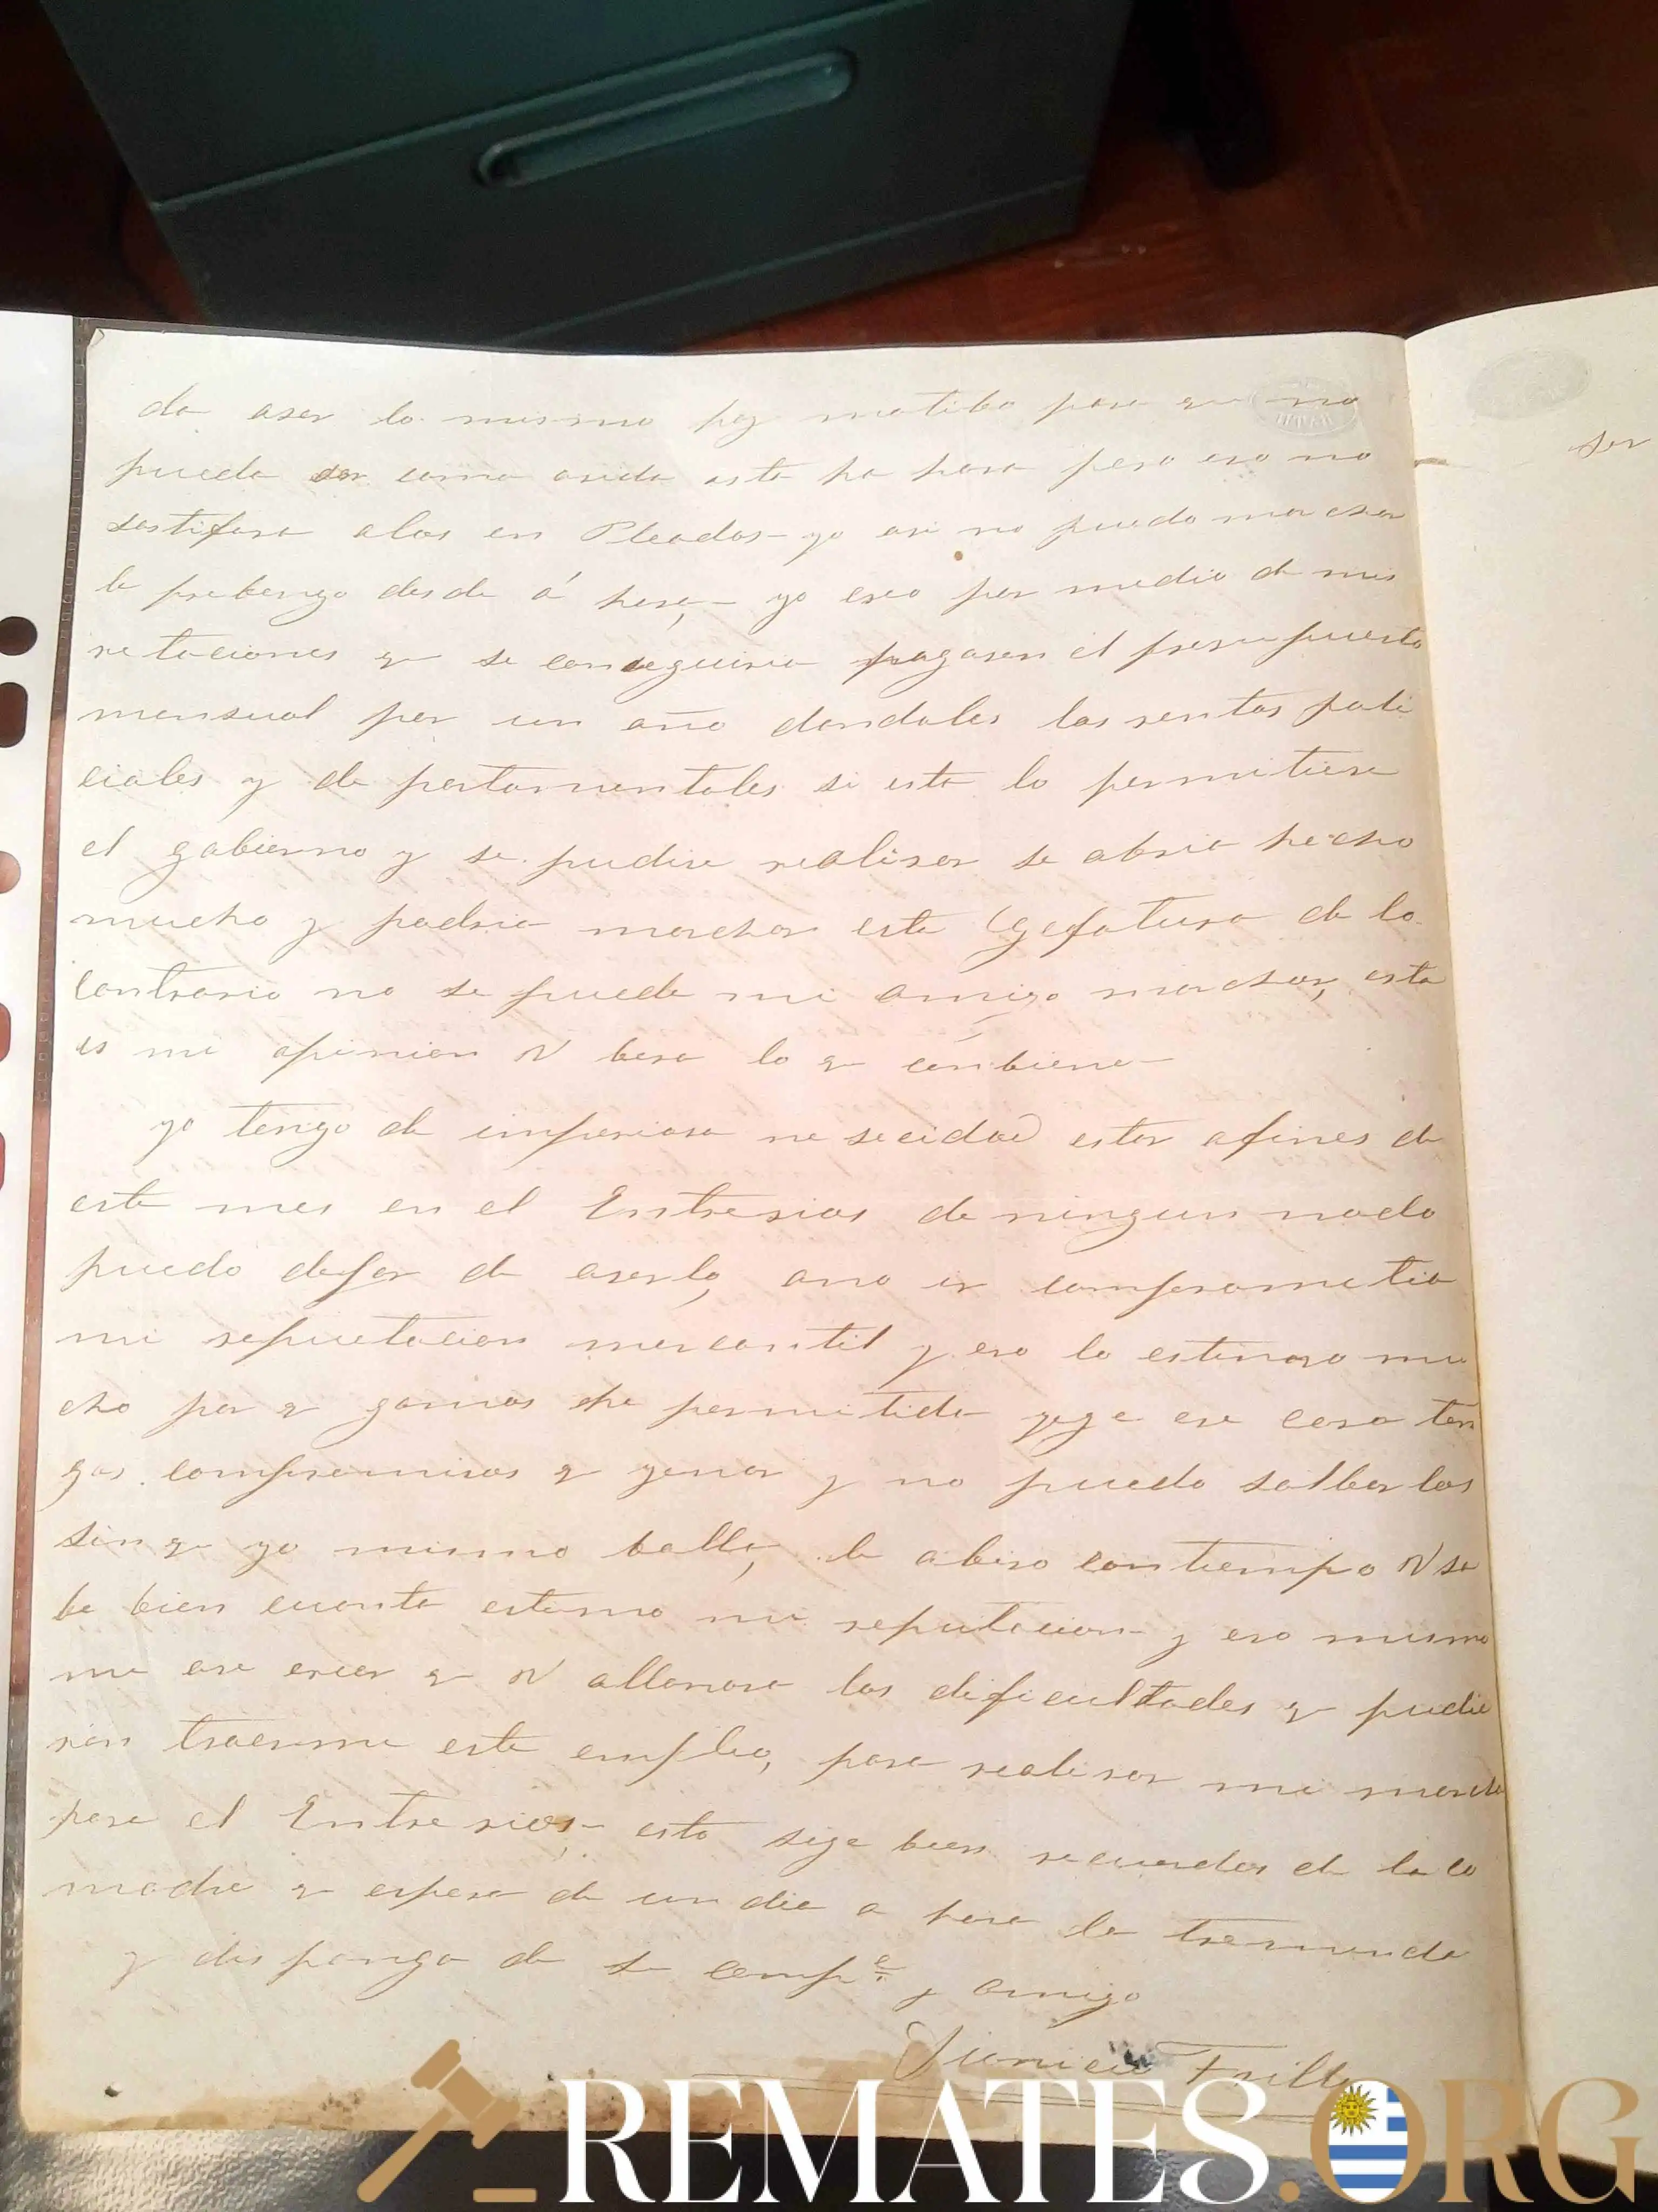 da aser lo mismo hoy matibo para que no
pueda ser como asida asta ha hora pero eso no
sastifara alos en Pleados - yo asi no puedo marchar
le prebengo desde á hora, - yo creo por medio de mis
relaciones q se conseguiria pagasen el presupuesto
mensual por un año dandoles las rentas poli
ciales y de partamentales si esto lo permitiera
el gobierno y se pudiese realisar se abria hecho
mucho y podria marchar esta Gefatura de lo
contrario no se puede mi amigo marchar, esta
es mi opinion V bera lo q conbiene -
yo tengo de imperiosa nesecidad estar afines de
este mes en el Entrerios de ningun modo
puedo dejar de aserlo, ano ir comprometia
mi reputacion mercantil y eso lo estimo mu
cho por q gamas he permitido ese caso ten
go compromisos q yenar y no puedo salbarlos
sin q yo mismo balla, le abiso con tiempo V sa
be bien cuanto estimo mi reputacion y eso mismo
me ase creer q V allanara las dificultades q pudie
ran traerme este empleo, para realisar mi marcha
para el Entrerios, - esta sige bien recuerdos de la co
madre q espera de un dia a hora la tremenda
y disponga de su comp.e y amigo
Trillo
ser
REMATES.ORG